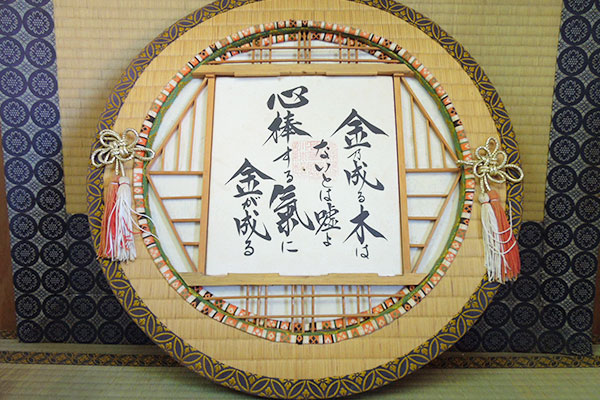 金の成る木は
ないとは嘘よ
心棒する氣に
金が成る